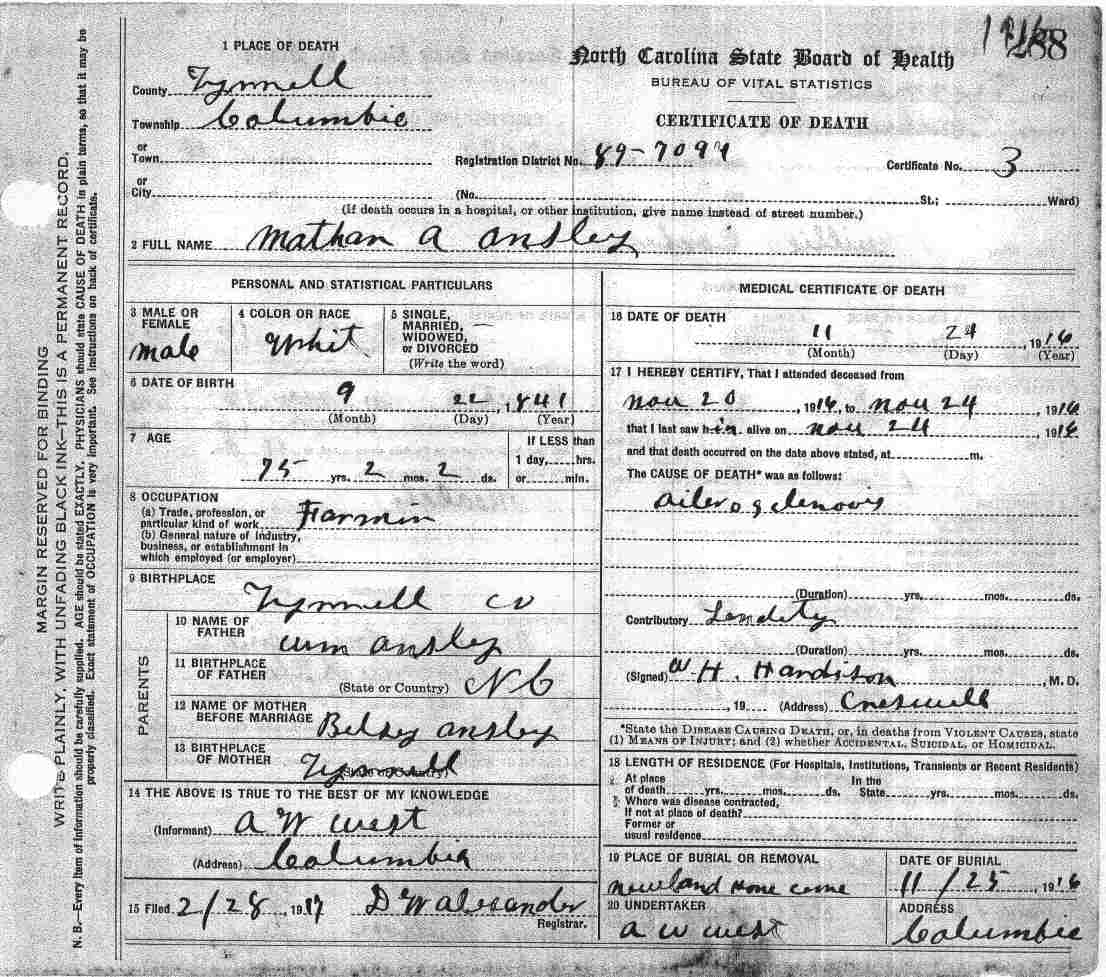 1916
288
1 PLACE OF DEATH
County Tyrrell
Township Columbia
or
Town
or
City
North Carolina State Board of Health
BUREAU OF VITAL STATISTICS
CERTIFICATE OF DEATH
Registration District No. 89-7094
Certificate No. 3
(No. St.; Ward)
(If death occurs in a hospital, or other institution, give name instead of street number.)
2 FULL NAME Nathan A Ansley
PERSONAL AND STATISTICAL PARTICULARS
3 MALE OR FEMALE
Male
4 COLOR OR RACE
Whit
5 SINGLE, MARRIED, WIDOWED, or DIVORCED
(Write the word)
6 DATE OF BIRTH
9 22, 1841
(Month) (Day) (Year)
7 AGE
75 yrs. 2 mos. 2 ds.
If LESS than
1 day, hrs.
or min.
8 OCCUPATION
(a) Trade, profession, or
particular kind of work Farmin
(b) General nature of industry,
business, or establishment in
which employed (or employer)
9 BIRTHPLACE
Tyrrell co
PARENTS
10 NAME OF FATHER
Wm Ansley
11 BIRTHPLACE OF FATHER
(State or Country) NC
12 NAME OF MOTHER BEFORE MARRIAGE
Betsy Ansley
13 BIRTHPLACE OF MOTHER
(State or Country) Tyrrell
14 THE ABOVE IS TRUE TO THE BEST OF MY KNOWLEDGE
(Informant) A W West
(Address) Columbia
15 Filed 2/28, 1917 D W Alexander
Registrar.
MEDICAL CERTIFICATE OF DEATH
16 DATE OF DEATH
11 24, 1916
(Month) (Day) (Year)
17 I HEREBY CERTIFY, That I attended deceased from
Nov 20, 1916, to Nov 24 1916
that I last saw him alive on Nov 24 1916
and that death occurred on the date above stated, at m.
The CAUSE OF DEATH* was as follows:
(Duration) yrs. mos. ds.
Contributory
(Duration) yrs. mos. ds.
(Signed) W H. Hardison, M. D.
, 19 (Address) Creswell
*State the DISEASE CAUSING DEATH, or, in deaths from VIOLENT CAUSES, state
(1) MEANS OF INJURY; and (2) whether ACCIDENTAL, SUICIDAL, or HOMICIDAL.
18 LENGTH OF RESIDENCE (For Hospitals, Institutions, Transients or Recent Residents)
At place of death yrs. mos. ds. In the State yrs. mos. ds.
Where was disease contracted,
If not at place of death?
Former or
usual residence
19 PLACE OF BURIAL OR REMOVAL
Newland
DATE OF BURIAL
11/25, 1916
20 UNDERTAKER
A W West
ADDRESS
Columbia
MARGIN RESERVED FOR BINDING
WRITE PLAINLY, WITH UNFADING BLACK INK—THIS IS A PERMANENT RECORD.
N. B.—Every item of information should be carefully supplied. AGE should be stated EXACTLY. PHYSICIANS should state CAUSE OF DEATH in plain terms, so that it may be
properly classified. Exact statement of OCCUPATION is very important. See instructions on back of certificate.